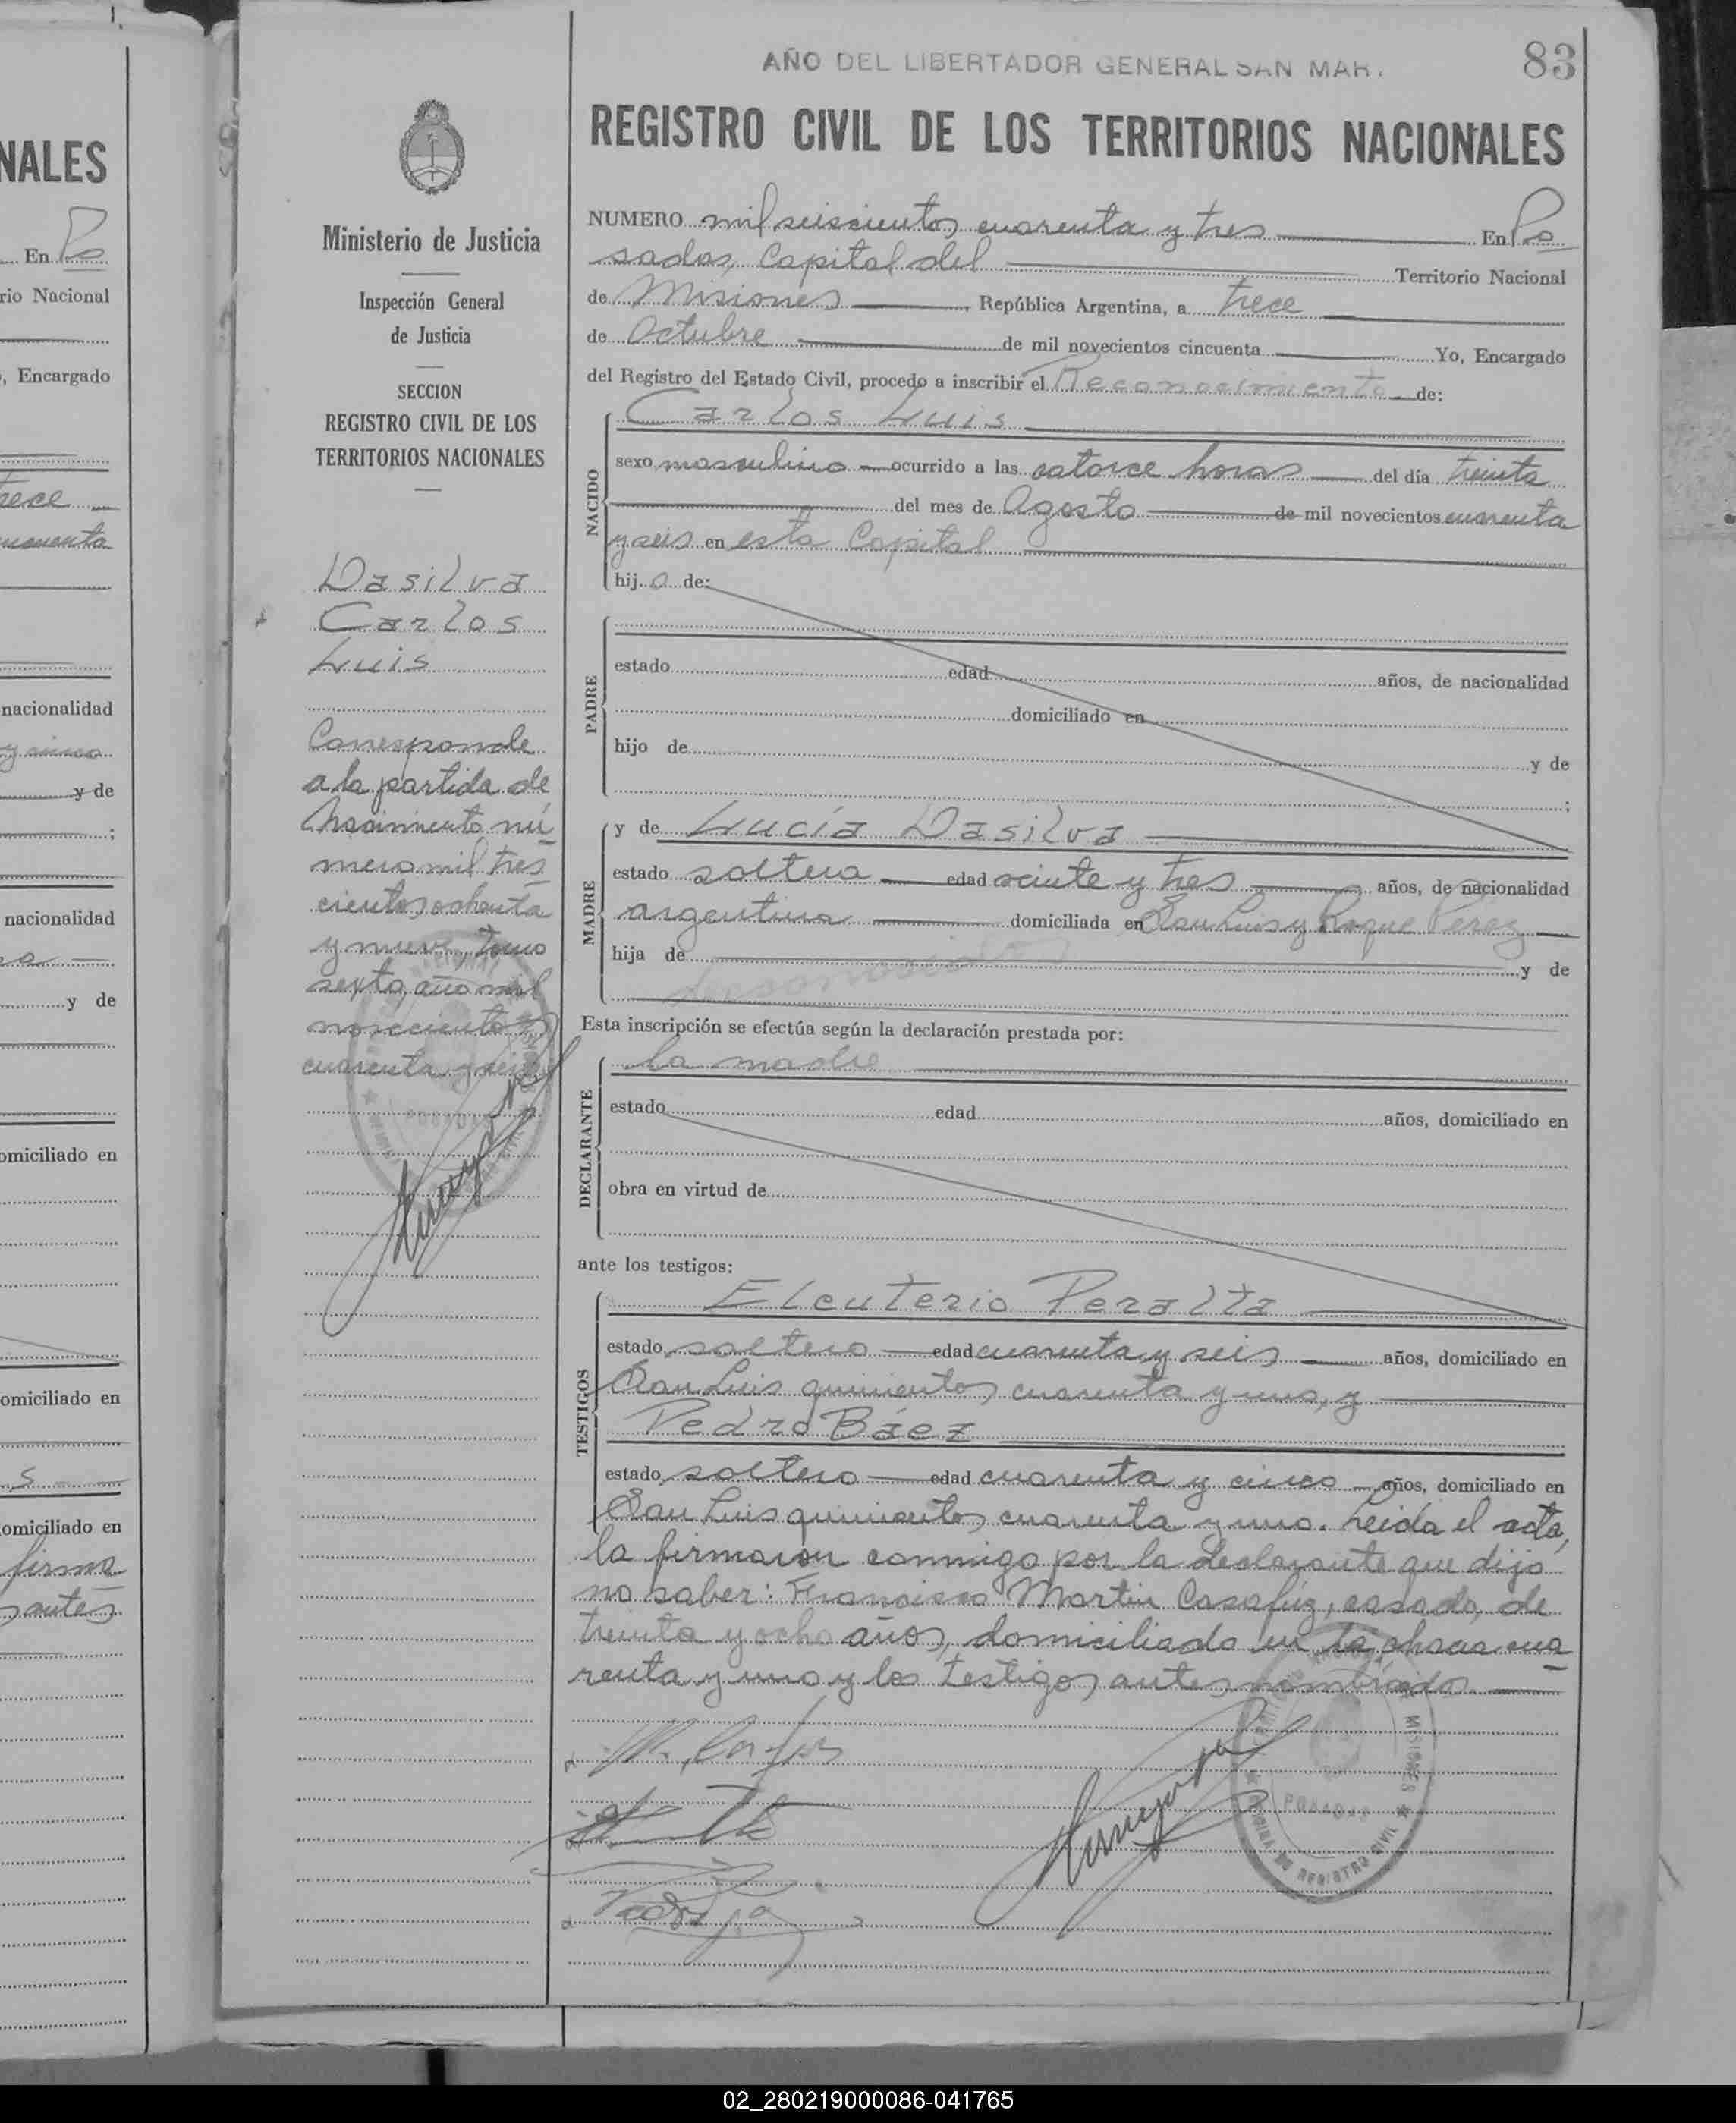 AÑO DEL LIBERTADOR GENERAL SAN MAR.
83
REGISTRO CIVIL DE LOS TERRITORIOS NACIONALES
Ministerio de Justicia
Inspección General
de Justicia
SECCION
REGISTRO CIVIL DE LOS
TERRITORIOS NACIONALES
Dasilva
Carlos
Luis
Corresponde
a la partida de
Nacimiento nú
mero mil tres
cientos ochenta
y nueve, tomo
sexto, año mil
novecientos
cuarenta y seis
NUMERO mil seiscientos cuarenta y tres En Po
sadas, Capital del Territorio Nacional
de Misiones, República Argentina, a trece
de Octubre de mil novecientos cincuenta Yo, Encargado
del Registro del Estado Civil, procedo a inscribir el Reconocimiento de:
NACIDO
Carlos Luis
sexo masculino ocurrido a las catorce horas del día treinta
del mes de Agosto de mil novecientos cuarenta
y seis en esta Capital
hijo de:
PADRE
estado edad años, de nacionalidad
domiciliado en
hijo de y de
;
MADRE
y de Lucía Dasilva
estado soltera edad veinte y tres años, de nacionalidad
argentina domiciliada en San Luis y Roque Perez
hija de y de
Esta inscripción se efectúa según la declaración prestada por:
DECLARANTE
la madre
estado edad años, domiciliado en
obra en virtud de
ante los testigos:
TESTIGOS
Eleuterio Peralta
estado soltero edad cuarenta y seis años, domiciliado en
San Luis quinientos cuarenta y uno, y
Pedro Báez
estado soltero edad cuarenta y cinco años, domiciliado en
San Luis quinientos cuarenta y uno. Leida el acta,
la firmaron conmigo por la declarante que dijo
no saber: Francisco Martin Casafúz, casado, de
treinta y ocho años, domiciliado en la chacra cua
renta y uno y los testigos antes nombrados.
POSADAS
MISIONES
OFICINA DE REGISTRO CIVIL
NALES
En Po
rio Nacional
, Encargado
trece
nacionalidad
y cinco
y de
;
nacionalidad
y de
omiciliado en
omiciliado en
s
omiciliado en
firma
antes
02_280219000086-041765